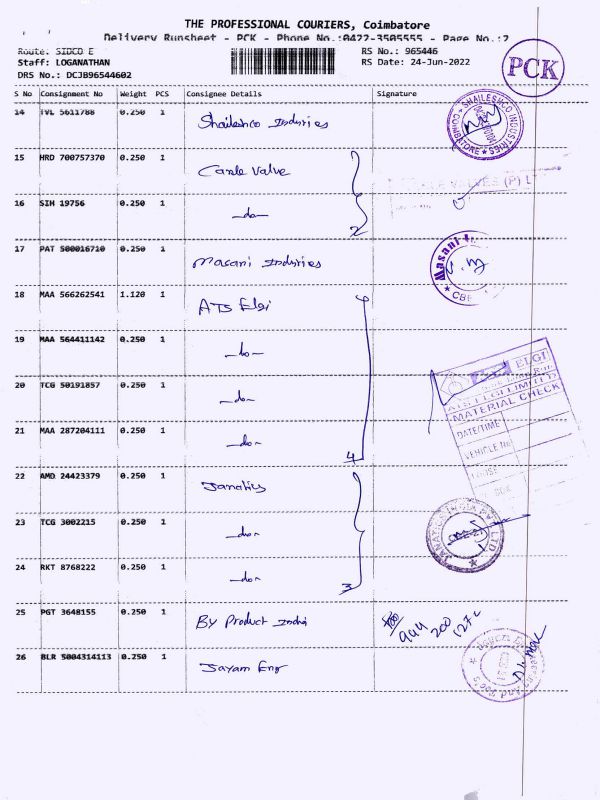 THE PROFESSIONAL COURIERS, Coimbatore
Delivery Runsheet - PCK - Phone No.:0422-3505555 - Page No.:2
PCK
Route: SIDCO E
RS No.: 965446
Staff: LOGANATHAN
RS Date: 24-Jun-2022
DRS No.: DCJB96544602
S No Consignment No Weight PCS Consignee Details Signature
14 TVL 5611788 0.250 1 Shaileshco Indsries
SHAILESHCO INDUSTRIES COIMBATORE
15 HRD 700757370 0.250 1 Carle Valve
VALVES (P) L
16 SIH 19756 0.250 1 -do-
2
17 PAT 500016710 0.250 1 Masani Indsries
Masani
CBE
18 MAA 566262541 1.120 1 ATS Elgi
19 MAA 564411142 0.250 1 -do-
20 TCG 50191857 0.250 1 -do-
21 MAA 287204111 0.250 1 -do-
4
ELGI
ATS ELGI LIMITED
MATERIAL CHECK
DATE/TIME
VEHICLE No
22 AMD 24423379 0.250 1 Janatics
23 TCG 3002215 0.250 1 -do-
24 RKT 8768222 0.250 1 -do-
3
25 PGT 3648155 0.250 1 By Product India
944 200
26 BLR 5004314113 0.250 1 Jayam Eng